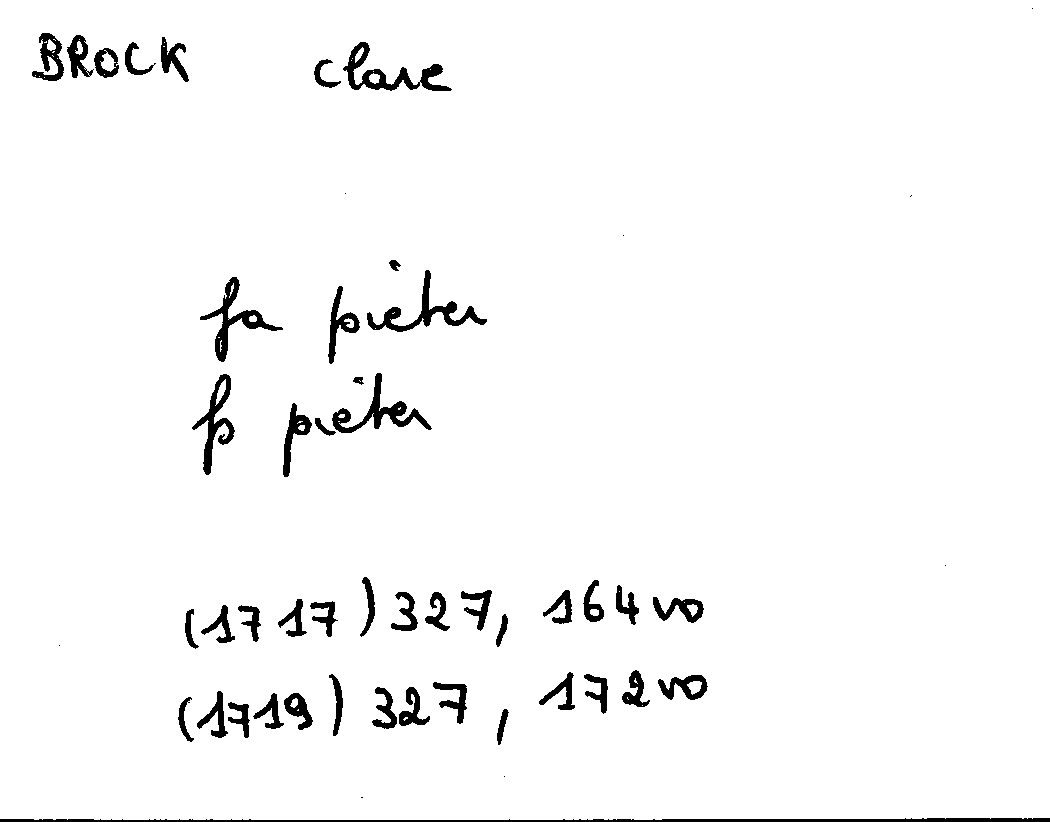 BROCK clare
fa pieter
fs pieter
(1717) 327, 164vo
(1719) 327, 172vo